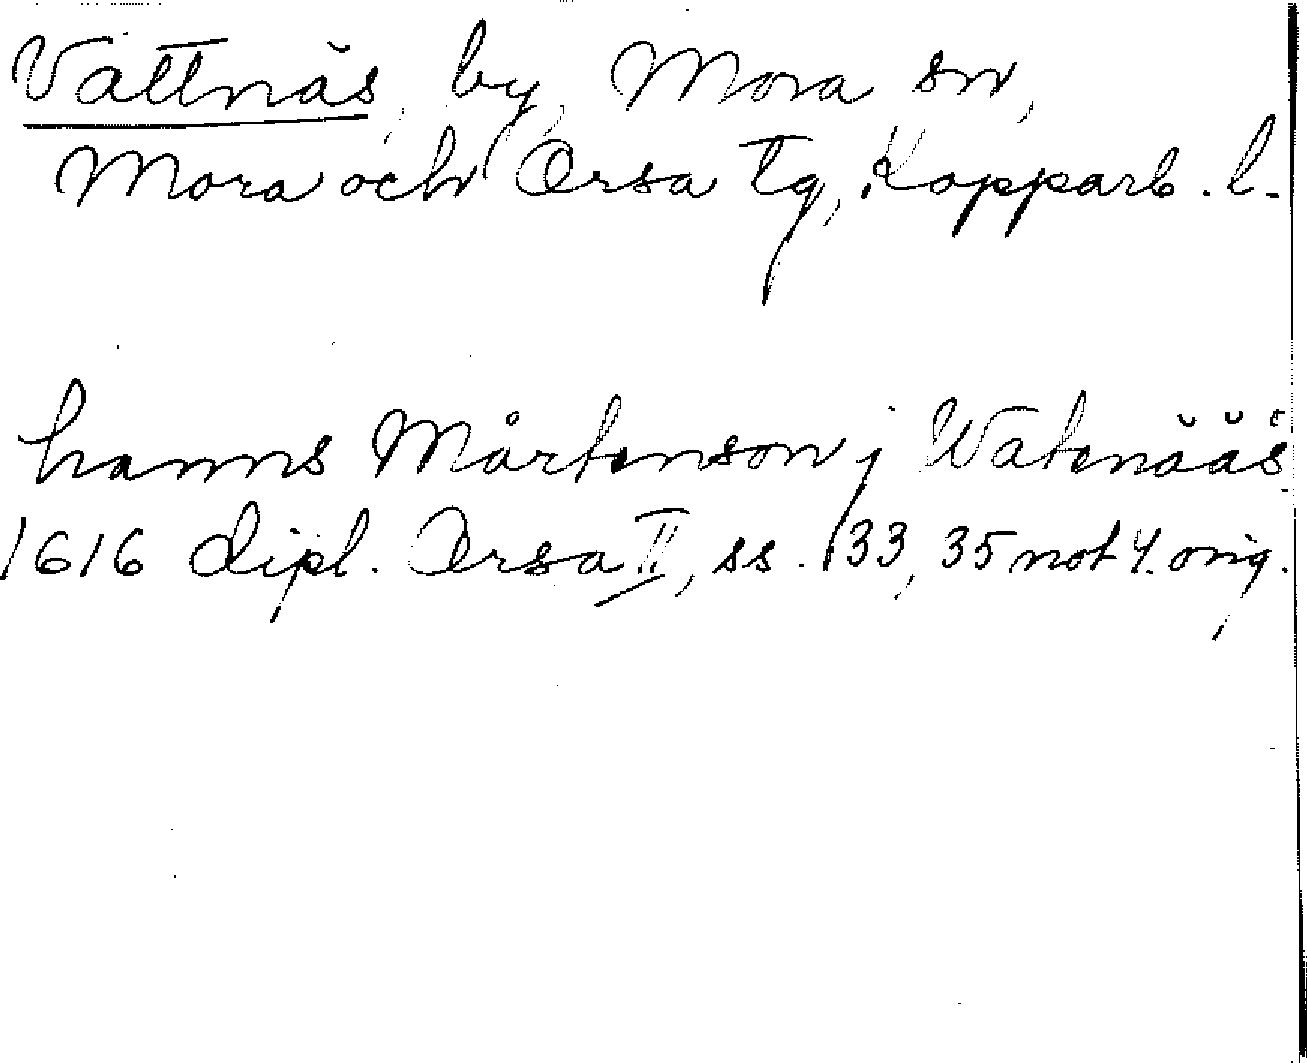 Vattnäs, by, Mora sn,
Mora och Orsa tg, Kopparb. l.
hanns Mårtenson j Watenääs
1616 dipl. Orsa II, ss. 133, 35 not 4. orig.